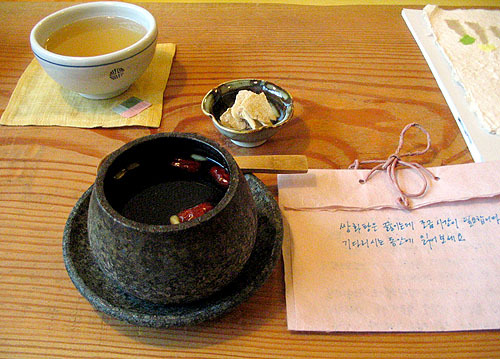 쌍화탕은 끓이는데 조금 시간이 필요합니다
기다리시는 동안에 읽어보세요